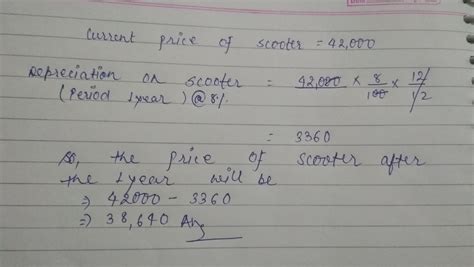 Current price of scooter = 42,000
Depreciation on scooter = 42,000 × 8/100 × 12/12
(Period 1year) @ 8%
= 3360
So, the price of scooter after
the 1year will be
⇒ 42000 - 3360
⇒ 38,640 Ans